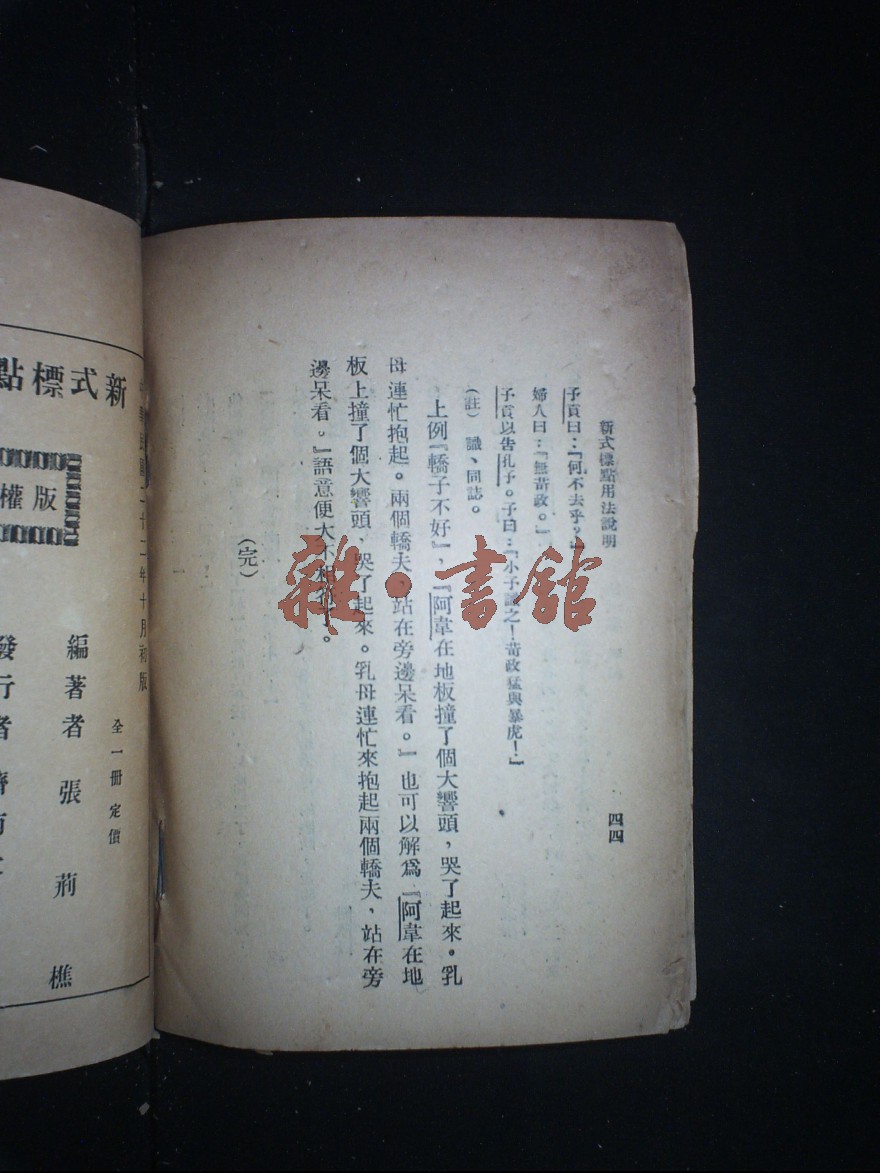 新式標點用法說明
四四
子貢曰：『何不去乎？』
婦人曰：『無苛政。』
子貢以告孔子。子曰：『小子識之！苛政猛與暴虎！』
（註） 識、同誌。
上例『轎子不好』，『阿韋在地板撞了個大響頭，哭了起來。乳
母連忙抱起。兩個轎夫，站在旁邊呆看。』也可以解爲『阿韋在地
板上撞了個大響頭，哭了起來。乳母連忙來抱起兩個轎夫，站在旁
邊呆看。』語意便大不相
（完）
雜·書館
二年十月初版
全一冊 定價
新式標點
版權
編著者 張 荊 樵
發行者